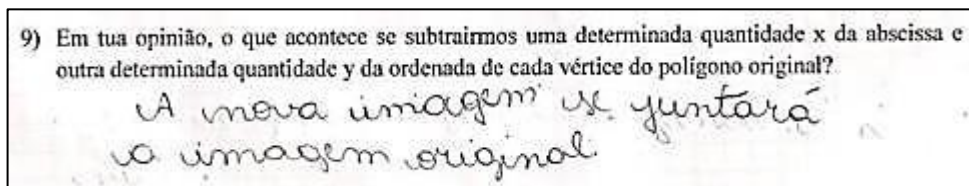 9) Em tua opinião, o que acontece se subtrairmos uma determinada quantidade x da abscissa e
outra determinada quantidade y da ordenada de cada vértice do polígono original?
A nova imagem se juntará
a imagem original